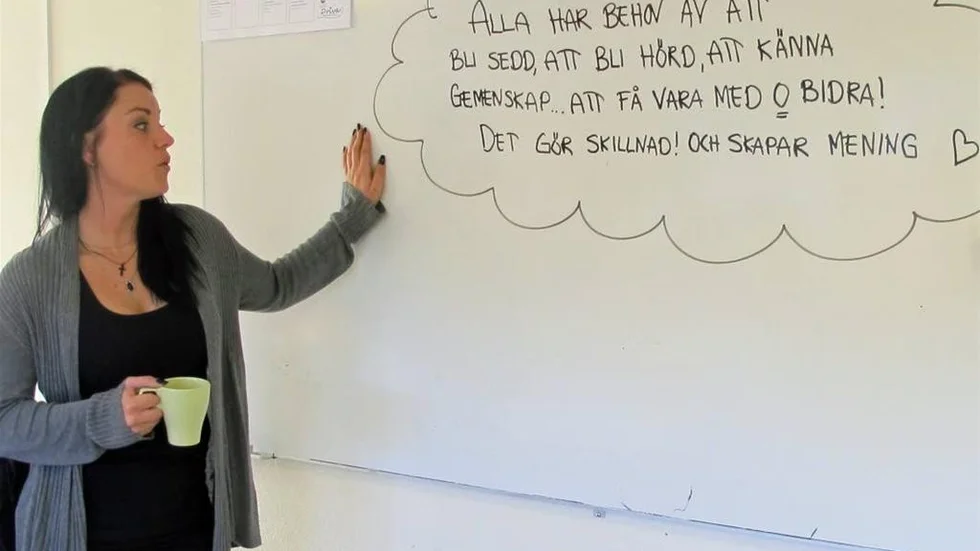 ALLA HAR BEHOV AV ATT
BLI SEDD, ATT BLI HÖRD, ATT KÄNNA
GEMENSKAP... ATT FÅ VARA MED O BIDRA!
DET GÖR SKILLNAD! OCH SKAPAR MENING